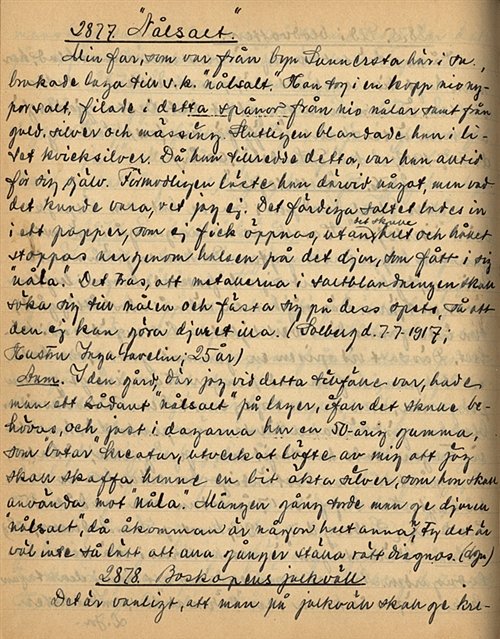 2877. "Nålsalt."
Min far, som var från byn Sunnersta här i sn,
brukade laga till s.k. "nålsalt." Han tog i en kopp nio ny-
por salt, filade i detta spånor från nio nålar samt från
guld, silver och mässing. Slutligen blandade han i li-
tet kvicksilver. Då han tillredde detta, var han alltid
för sig själv. Förmodligen läste han därvid något, men vad
det kunde vara, vet jag ej. Det färdiga saltet lades in
i ett papper, som ej fick öppnas, utan det skulle helt och hållet
stoppas ner genom halsen på det djur, som fått i sig
"nåla." Det tros, att metallerna i saltblandningen skall
söka sig till nålen och fästa sig på dess spets, så att
den ej kan göra djuret illa. (Solberg d. 7-7-1917;
Hustru Inga Favelin, 25 år)
Anm. I den gård, där jag vid detta tillfälle var, hade
man ett sådant "nålsalt" på lager, ifall det skulle be-
hövas, och just i dagarna har en 50-årig gumma,
som "botar" kreatur, utverkat löfte av mig att jag
skall skaffa henne en bit äkta silver, som hon skall
använda mot "nåla". Mången gång torde man ge djuren
"nålsalt", då åkomman är någon helt annan, ty det är
väl inte så lätt att alla gånger ställa rätt diagnos. (dgn)
2878. Boskapens julkväll
Det är vanligt, att man på julkväll skall ge kre-